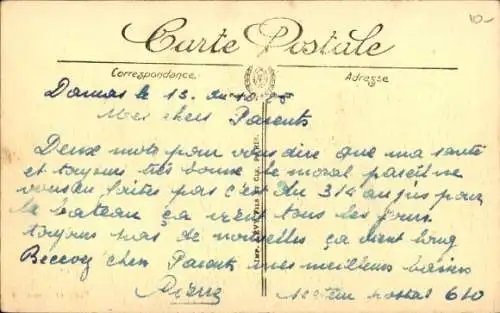 Carte Postale
Correspondance
Adresse
Damas le 13.
Mes chers Parents
Deux mots pour vous dire que ma santé
et toujours très bonne le moral pareil ne
vous en faites pas c'est du 314 au jus pour
le bateau ça vient tous les jours
toujours pas de nouvelles ça vient long
Recevez chers Parents mes meilleurs baisers
Pierre
secteur postal 610